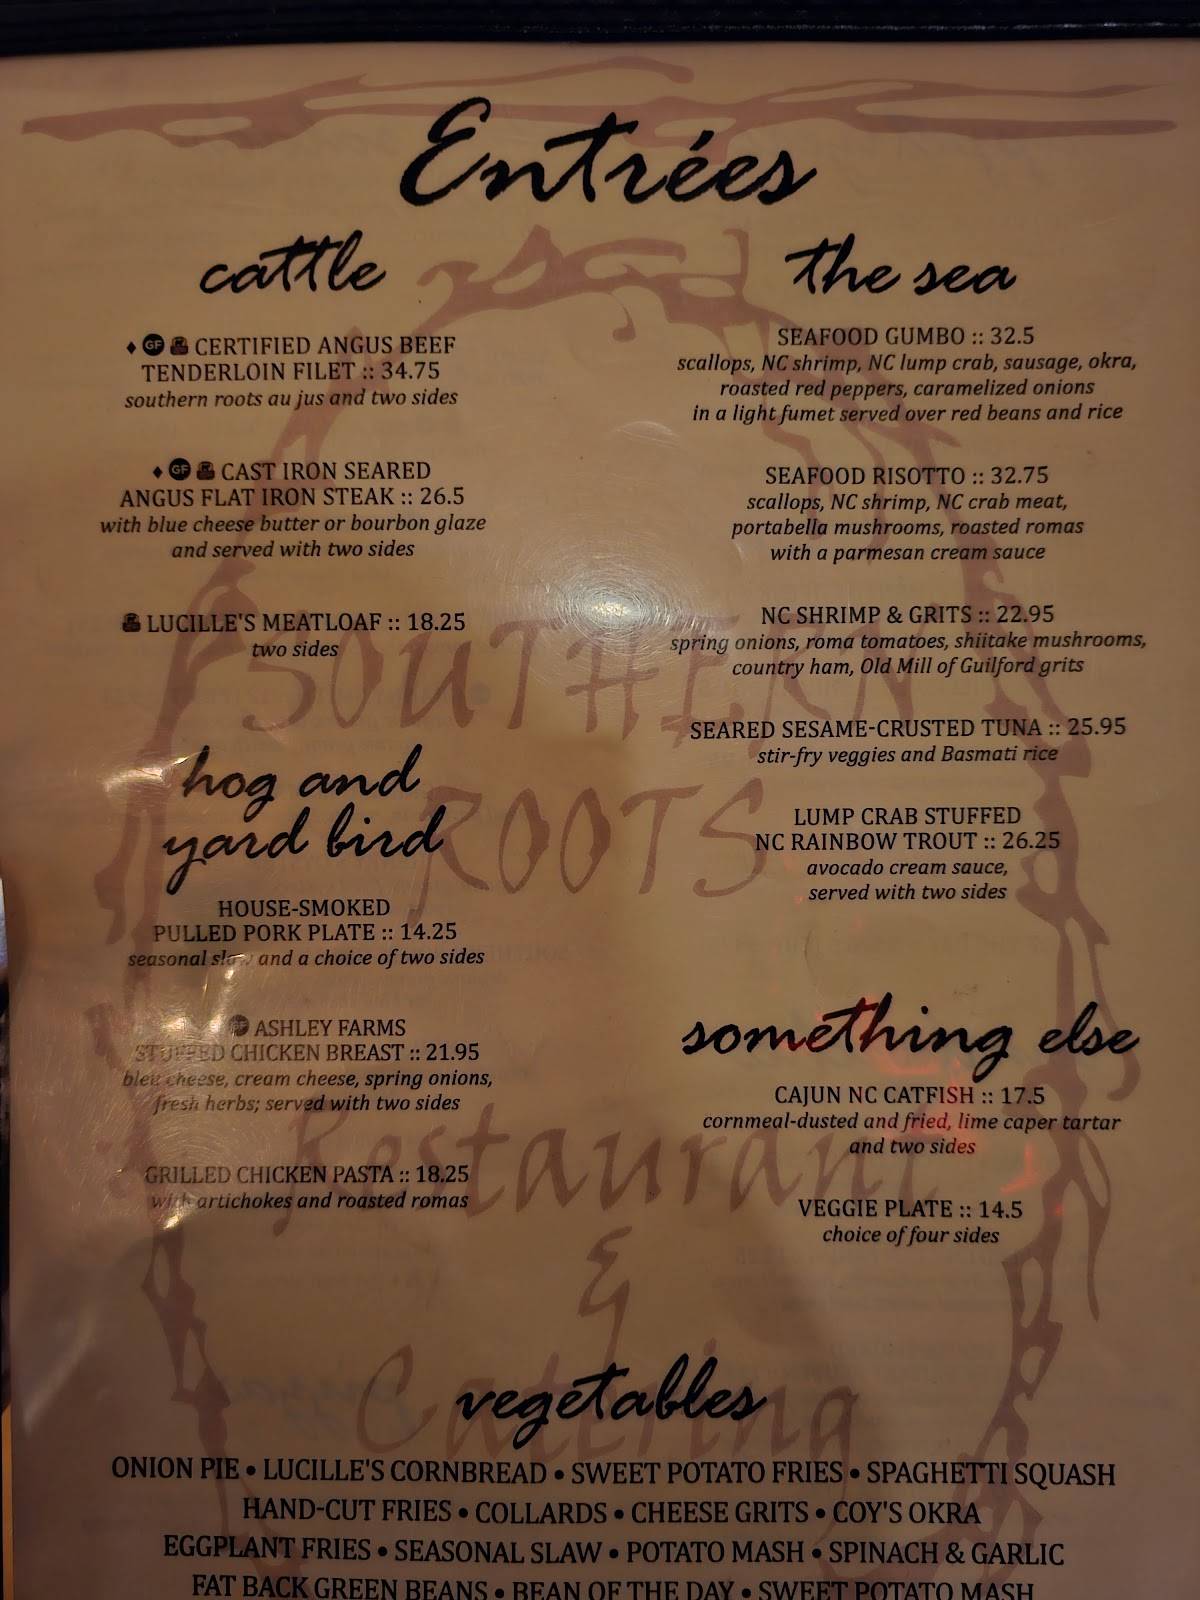 Entrées
cattle
♦ GF CERTIFIED ANGUS BEEF
TENDERLOIN FILET :: 34.75
southern roots au jus and two sides
♦ GF CAST IRON SEARED
ANGUS FLAT IRON STEAK :: 26.5
with blue cheese butter or bourbon glaze
and served with two sides
LUCILLE'S MEATLOAF :: 18.25
two sides
hog and
yard bird
HOUSE-SMOKED
PULLED PORK PLATE :: 14.25
seasonal slaw and a choice of two sides
GF ASHLEY FARMS
STUFFED CHICKEN BREAST :: 21.95
bleu cheese, cream cheese, spring onions,
fresh herbs; served with two sides
GRILLED CHICKEN PASTA :: 18.25
with artichokes and roasted romas
the sea
SEAFOOD GUMBO :: 32.5
scallops, NC shrimp, NC lump crab, sausage, okra,
roasted red peppers, caramelized onions
in a light fumet served over red beans and rice
SEAFOOD RISOTTO :: 32.75
scallops, NC shrimp, NC crab meat,
portabella mushrooms, roasted romas
with a parmesan cream sauce
NC SHRIMP & GRITS :: 22.95
spring onions, roma tomatoes, shiitake mushrooms,
country ham, Old Mill of Guilford grits
SEARED SESAME-CRUSTED TUNA :: 25.95
stir-fry veggies and Basmati rice
LUMP CRAB STUFFED
NC RAINBOW TROUT :: 26.25
avocado cream sauce,
served with two sides
something else
CAJUN NC CATFISH :: 17.5
cornmeal-dusted and fried, lime caper tartar
and two sides
VEGGIE PLATE :: 14.5
choice of four sides
SOUTHERN
ROOTS
Restaurant
&
Catering
vegetables
ONION PIE • LUCILLE'S CORNBREAD • SWEET POTATO FRIES • SPAGHETTI SQUASH
HAND-CUT FRIES • COLLARDS • CHEESE GRITS • COY'S OKRA
EGGPLANT FRIES • SEASONAL SLAW • POTATO MASH • SPINACH & GARLIC
FAT BACK GREEN BEANS • BEAN OF THE DAY • SWEET POTATO MASH